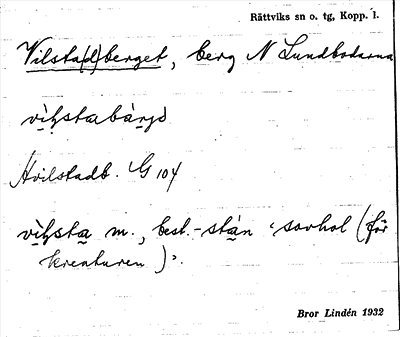 Rättviks sn o. tg, Kopp. l.
Vilsta(d)berget, berg N Lundbodarna
vìl̥stabàrjə
Hvilstadb. G 104
vìl̥sta m., best. -stan 'sovhol (för
kreaturen)'.
Bror Lindén 1932